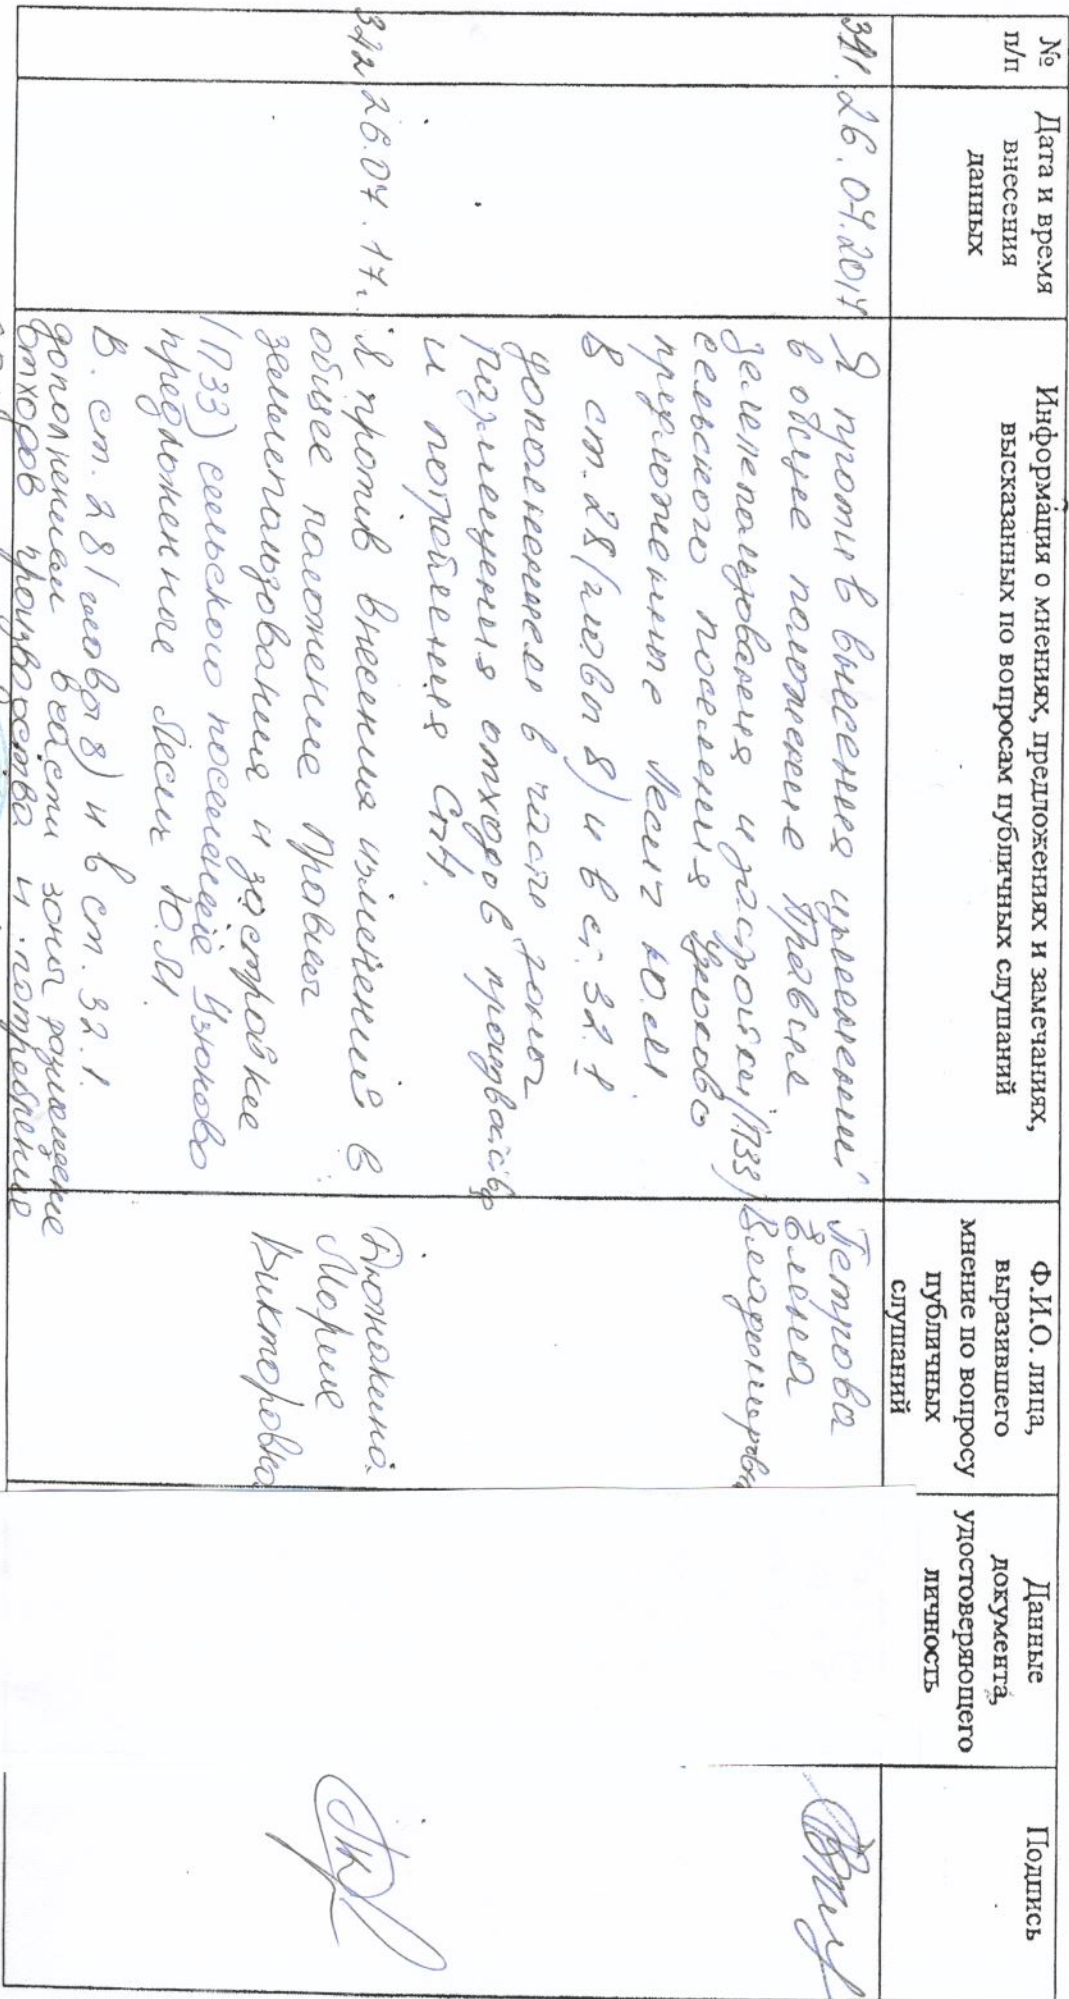 №
п/п
Дата и время
внесения
данных
Информация о мнениях, предложениях и замечаниях,
высказанных по вопросам публичных слушаний
Ф.И.О. лица,
выразившего
мнение по вопросу
публичных
слушаний
Данные
документа,
удостоверяющего
личность
Подпись
26.07.2017
Я против внесения изменений
в общее положение Правил
землепользования и застройки (ПЗЗ)
сельского поселения Узюково
предложенные Ю.М
в ст. 28 (главы 8) и в ст. 32.1
дополнением в части зоны
размещения отходов производства
и потребления СП4.
Петрова
Елена
Владимировна
342 26.07.17г.
Я против внесения изменений в
общее положение Правил
землепользования и застройке
(ПЗЗ) сельского поселение Узюково
предложенные Ю.М.
В. ст. 28 (главы 8) и в ст. 32.1.
дополнением в части зоны размещение
отходов производства и потребления
Мария
Викторовна